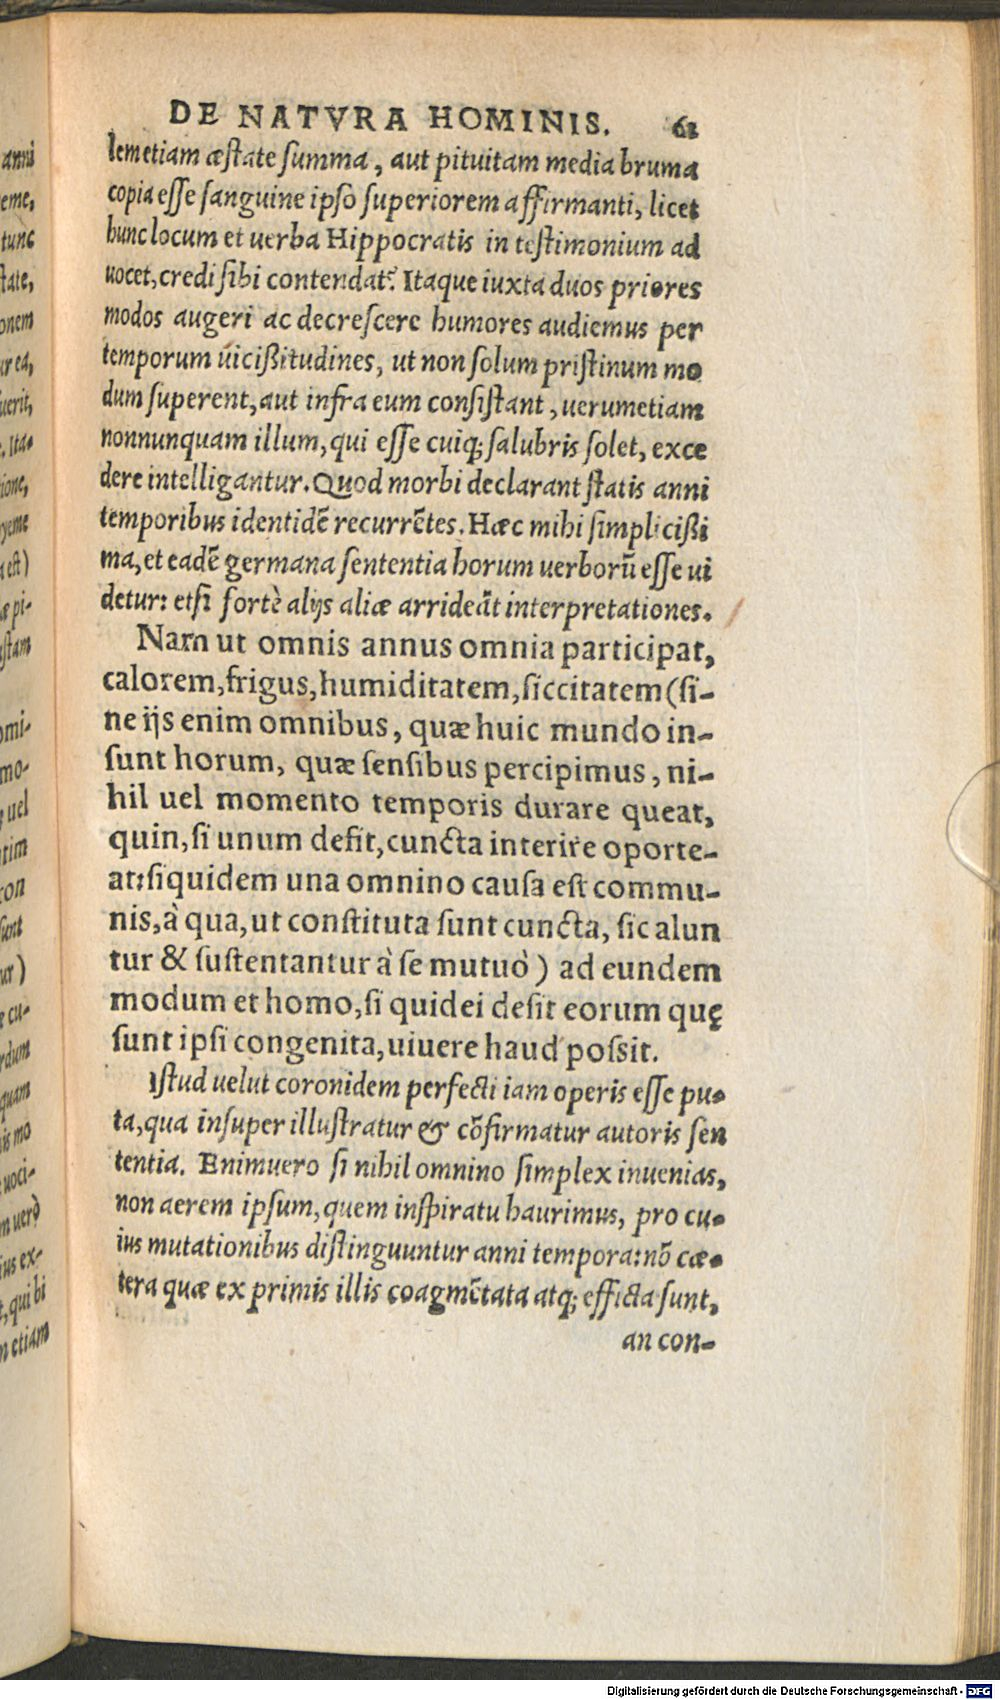 DE NATVRA HOMINIS. 61
lemetiam æſtate ſumma, aut pituitam media bruma
copia eſſe ſanguine ipſo ſuperiorem affirmanti, licet
hunc locum et uerba Hippocratis in teſtimonium ad
uocet, credi ſibi contendat? Itaque iuxta duos priores
modos augeri ac decreſcere humores audiemus per
temporum uicißitudines, ut non ſolum priſtinum mo
dum ſuperent, aut infra eum conſiſtant, uerumetiam
nonnunquam illum, qui eſſe cuiq; ſalubris ſolet, exce
dere intelligantur. Quod morbi declarant ſtatis anni
temporibus identidē recurrētes. Hæc mihi ſimplicißi
ma, et eadē germana ſententia horum uerborū eſſe ui
detur: etſi fortè alijs aliæ arrideāt interpretationes.
Nam ut omnis annus omnia participat,
calorem, frigus, humiditatem, ſiccitatem (ſi-
ne ijs enim omnibus, quæ huic mundo in-
ſunt horum, quæ ſenſibus percipimus, ni-
hil uel momento temporis durare queat,
quin, ſi unum deſit, cuncta interire oporte-
at: ſiquidem una omnino cauſa eſt commu-
nis, à qua, ut conſtituta ſunt cuncta, ſic alun
tur & ſuſtentantur à ſe mutuò) ad eundem
modum et homo, ſi quidei deſit eorum quę
ſunt ipſi congenita, uiuere haud poſsit.
Iſtud uelut coronidem perfecti iam operis eſſe pu-
ta, qua inſuper illuſtratur & cōfirmatur autoris ſen
tentia. Enimuero ſi nihil omnino ſimplex inuenias,
non aerem ipſum, quem inſpiratu haurimus, pro cu-
ius mutationibus diſtinguuntur anni tempora: nō cæ-
tera quæ ex primis illis coagmētata atq; efficta ſunt,
an con-
anni
eme,
tunc
ſtate,
onem
ur ea,
uerit,
. Ita-
ione,
yeme
a eſt)
æ pi-
ſtam
omi-
mo-
uel
tim
ron
ſunt
ur)
e cu-
rdum
quam
is mo
uoci-
m uerò
ius ex-
t, qui bi
m etiam
Digitalisierung gefördert durch die Deutsche Forschungsgemeinschaft - DFG